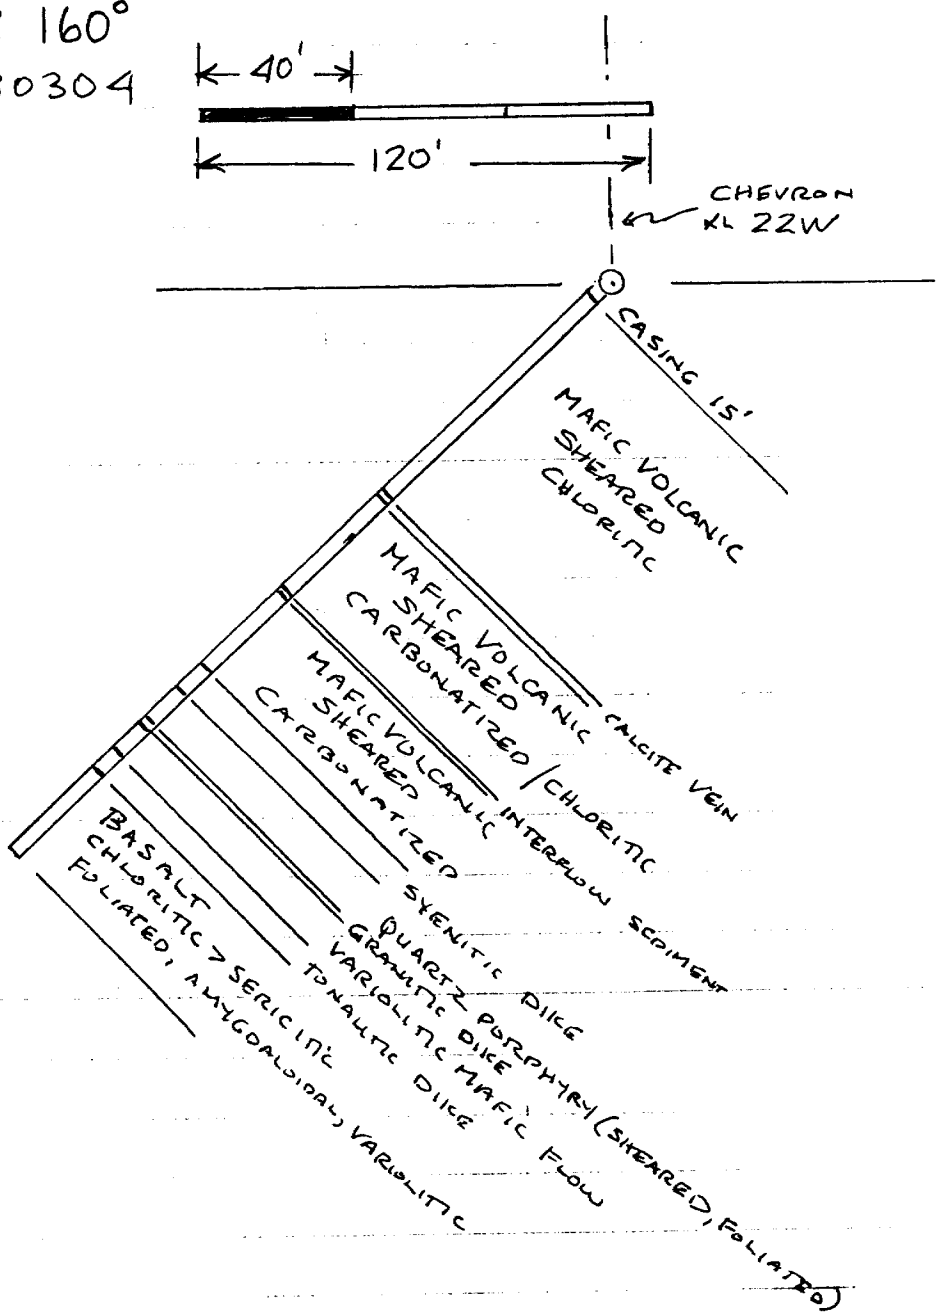 160°
0304
40'
120'
CHEVRON
XL 22W
CASING 15'
MAFIC VOLCANIC
SHEARED
CHLORITIC
CALCITE VEIN
MAFIC VOLCANIC
SHEARED
CARBONATIZED / CHLORITIC
INTERFLOW SEDIMENT
MAFIC VOLCANIC
SHEARED
CARBONATIZED
SYENITIC DIKE
QUARTZ PORPHYRY (SHEARED, FOLIATED)
GRANITIC DIKE
VARIOLITIC MAFIC FLOW
TONALITIC DIKE
BASALT
CHLORITIC > SERICITIC
FOLIATED, AMYGDALOIDAL, VARIOLITIC